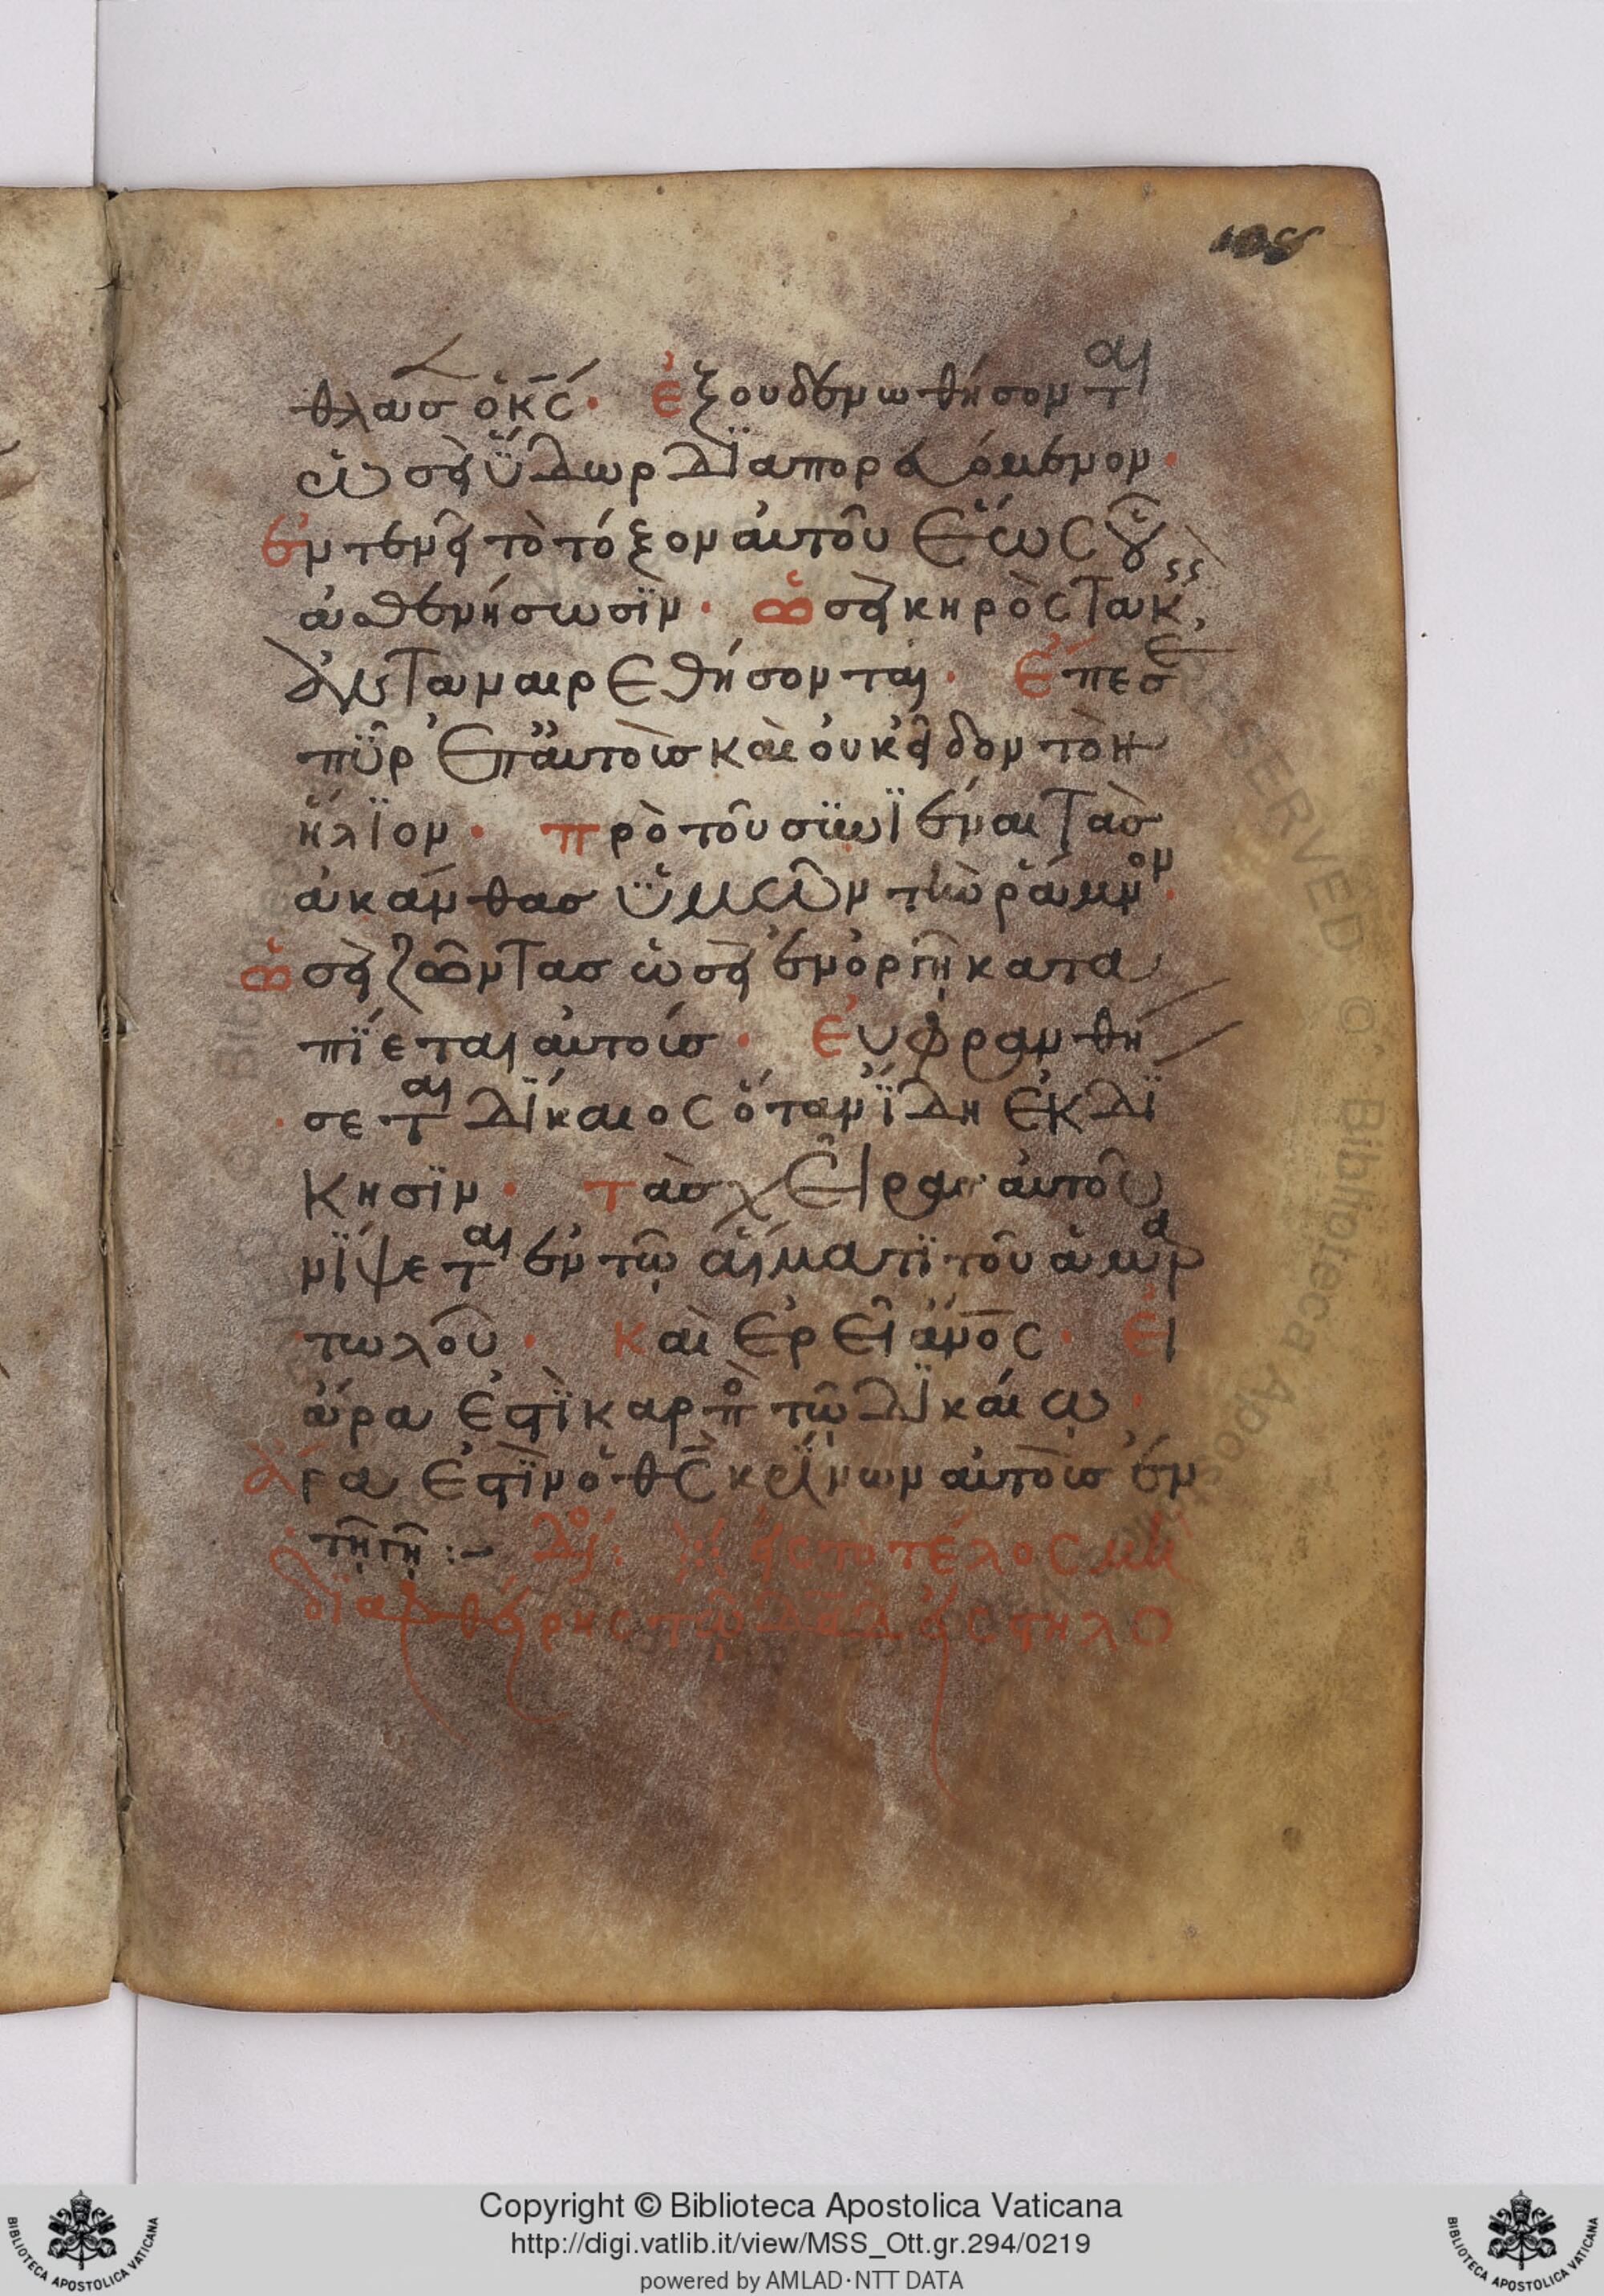 105
θλασ ὁ κς· ἐξουδενωθήσονται
ὡσεὶ ὕδωρ διαπορευόμενον·
ἐντενεῖ τὸ τόξον αὐτοῦ ἕως οὗ
ἀσθενήσωσϊν· ὡσεὶ κηρὸς τακεὶς
ἀνταναιρεθήσονται· ἔπεσε
πῦρ ἐπ αὐτοὺς καὶ οὐκ εἶδον τὸν
ἥλϊον· πρὸ τοῦ συνϊέναι τὰσ
ἀκάνθασ ὑμῶν τὴν ράμνον·
ὡσεὶ ζῶντασ ὡσεὶ ἐν ὀργῇ κατα
πΐεται αὐτούσ· εὐφρανθή
σεται δίκαιος ὅταν ἴδη ἐκδϊ
κησϊν· τὰσ χεῖρας αὐτοῦ
νΐψεται ἐν τῷ αἵματϊ τοῦ ἁμαρ
τωλοῦ· καὶ ἐρεῖ ἄνος· εἰ
ἄρα ἐστὶ καρπὸ τῷ δικαίῳ·
ἄρα ἐστὶν ὁ θς κρίνων αὐτοὺσ ἐν
τῇ γῇ :– εἰς τὸ τέλος μὴ
διαφθείρης τῷ δαδ εἰς στηλο
Copyright © Biblioteca Apostolica Vaticana
http://digi.vatlib.it/view/MSS_Ott.gr.294/0219
powered by AMLAD·NTT DATA
BIBLIOTECA APOSTOLICA VATICANA
BIBLIOTECA APOSTOLICA VATICANA